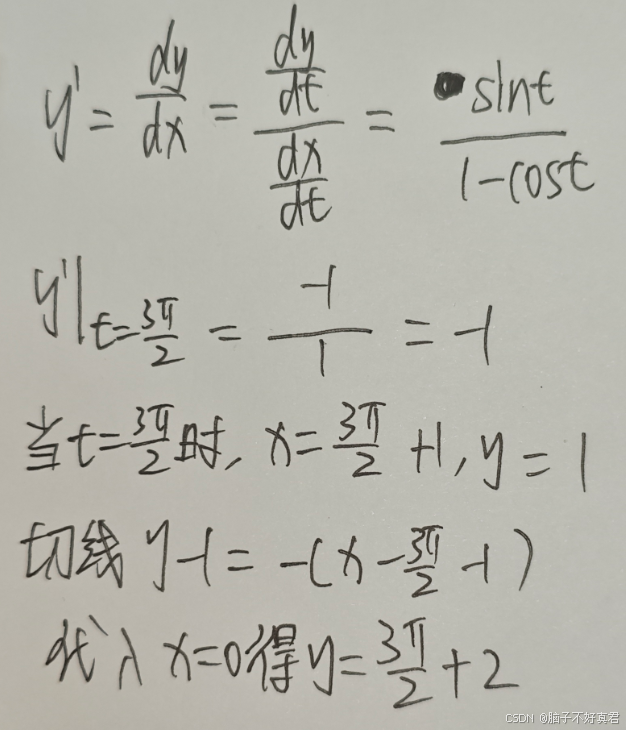 y' = dy/dx = (dy/dt)/(dx/dt) = sint/(1-cost)
y'|t=3π/2 = -1/1 = -1
当t=3π/2时, x=3π/2+1, y=1
切线 y-1=-(x-3π/2-1)
代入 x=0得y=3π/2+2
CSDN @脑子不好真君